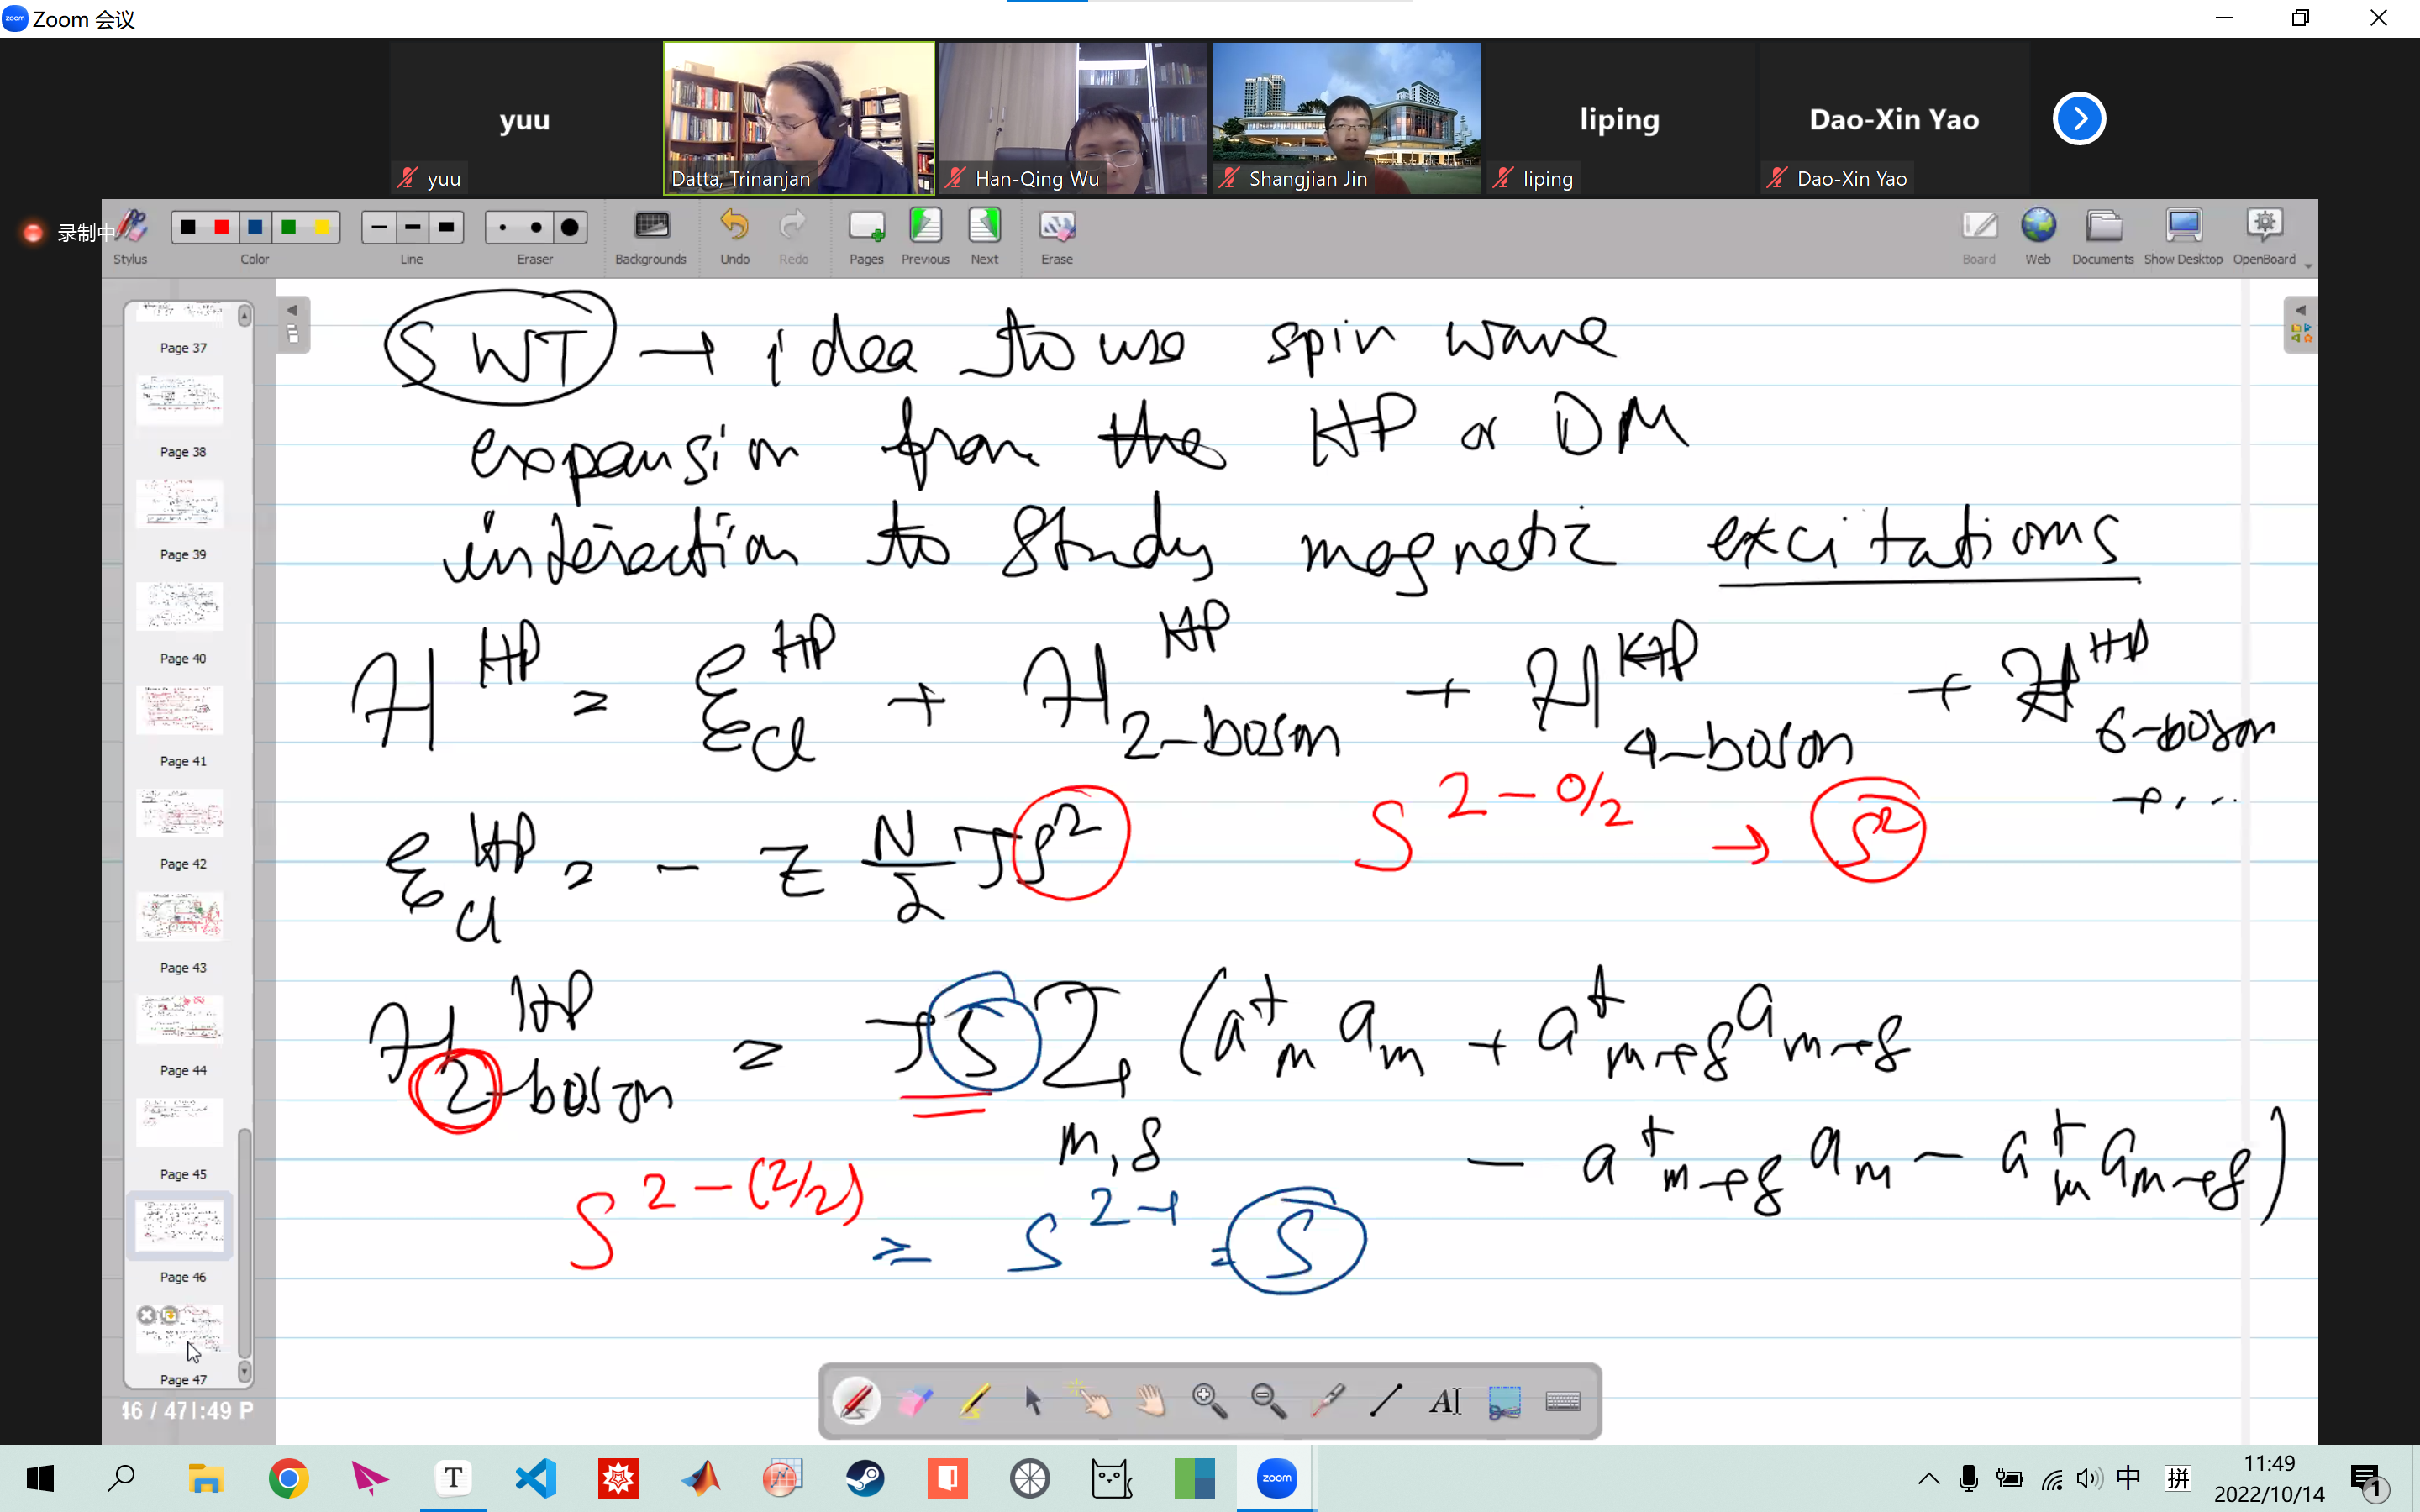 Zoom 会议
yuu
liping
Dao-Xin Yao
yuu
Datta, Trinanjan
Han-Qing Wu
Shangjian Jin
liping
Dao-Xin Yao
录制中
Stylus
Color
Line
Eraser
Backgrounds
Undo
Redo
Pages
Previous
Next
Erase
Board
Web
Documents
Show Desktop
OpenBoard
Page 37
Page 38
Page 39
Page 40
Page 41
Page 42
Page 43
Page 44
Page 45
Page 46
Page 47
SWT → idea to use spin wave
expansion from the HP or DM
interaction to study magnetic excitations
H^HP = ξ_cl^HP + H_2-boson^HP + H_4-boson^HP + H_6-boson^HP
+ ...
S^2-0/2 → S^2
ξ_cl^HP = - z N/2 J S^2
H_2-boson^HP = J S Σ_m,δ (a^+_m a_m + a^+_m+δ a_m+δ
- a^+_m+δ a_m - a^+_m a_m+δ)
S^2-(2/2) = S^2-1 = S
46 / 47
1:49 P
zoom
中
拼
11:49
2022/10/14
1